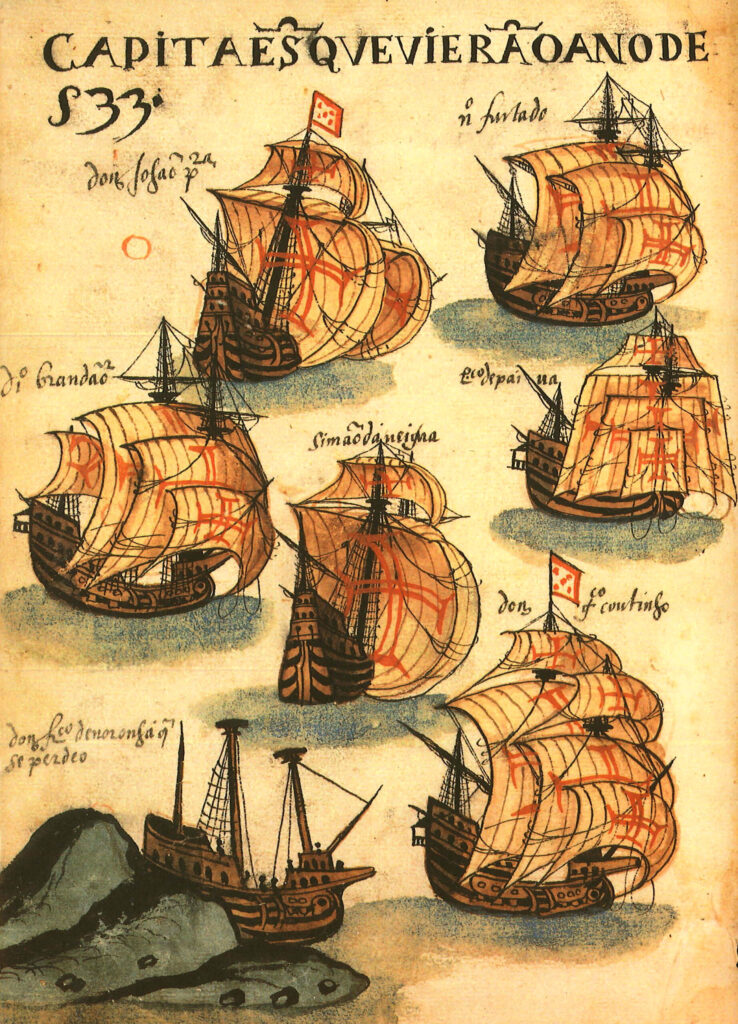 CAPITAẼS QVE VIERÃO O ANO DE
533.
don Johão pra
nº furtado
diº brandãor
frco de paiva
Simão da veigua
don gco coutinho
don frco de noronha q̃
se perdeo